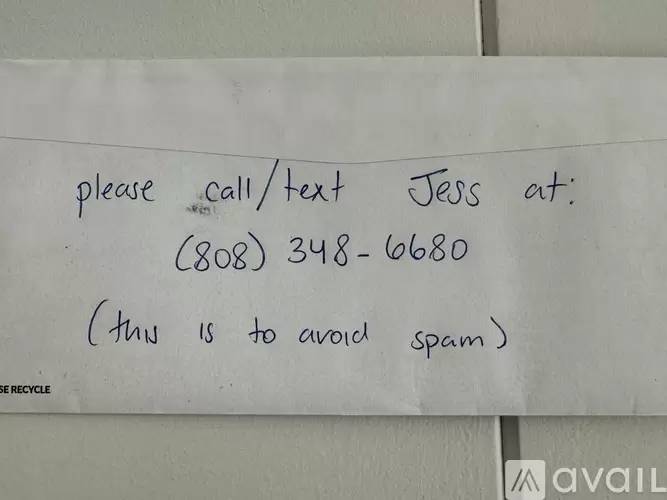 please call/text Jess at:
(808) 348-6680
(this is to avoid spam)
SE RECYCLE
avail